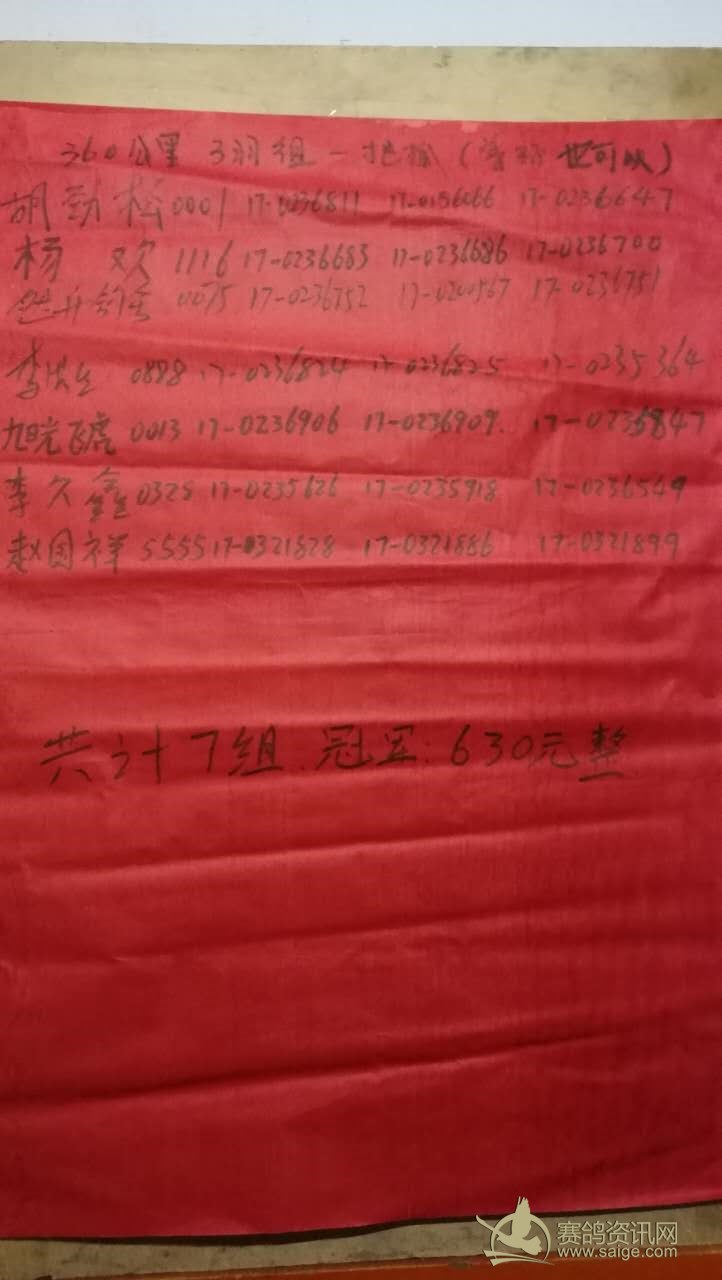 360公里 3羽组 一把抓 ( 也可以)
胡劲松 0001 17-0236811 17-0156066 17-0236647
杨 欢 1116 17-0236683 17-0236686 17-0236700
0075 17-0236752 17-0200567 17-0236751
李洪生 0888 17-0236824 17-0236825 17-0235364
旭晓飞虎 0013 17-0236906 17-0236909. 17-0235847
李久鑫 0328 17-0235626 17-0235918 17-0236549
赵国祥 5555 17-0321828 17-0321886 17-0321899
共计7组.冠军:630元整
赛鸽资讯网
www.saige.com